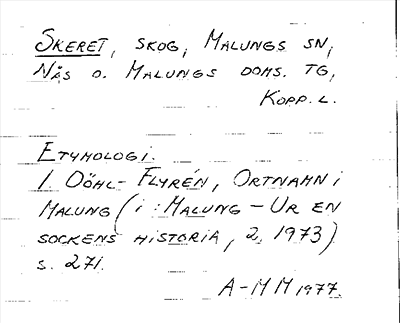 SKERET, SKOG, MALUNGS SN,
NÅS O. MALUNGS DOMS. TG,
KOPP. L.
ETYMOLOGI.
I. DÖHL-FLYRÉN, ORTNAMN I
MALUNG (I: MALUNG - UR EN
SOCKENS HISTORIA, 2, 1973)
S. 271.
A-MM 1977.